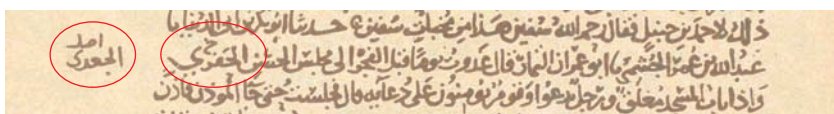 ذلك لاحمد بن حنبل فقال رحم الله سفين هذا من مخبات سفين حدثنا ابو بكر بن ابي الدنيا نا
عبد الله بن عمر الجشمي نا ابو عمران التمار قال غدوت يوما قبل الفجر الى مجلس الحسن الجفري
اصل
الجعدي
واذا باب المسجد مغلق ورجل يدعوا وقوم يومنون على دعايه قال فجلست حتى جا الموذن فاذن